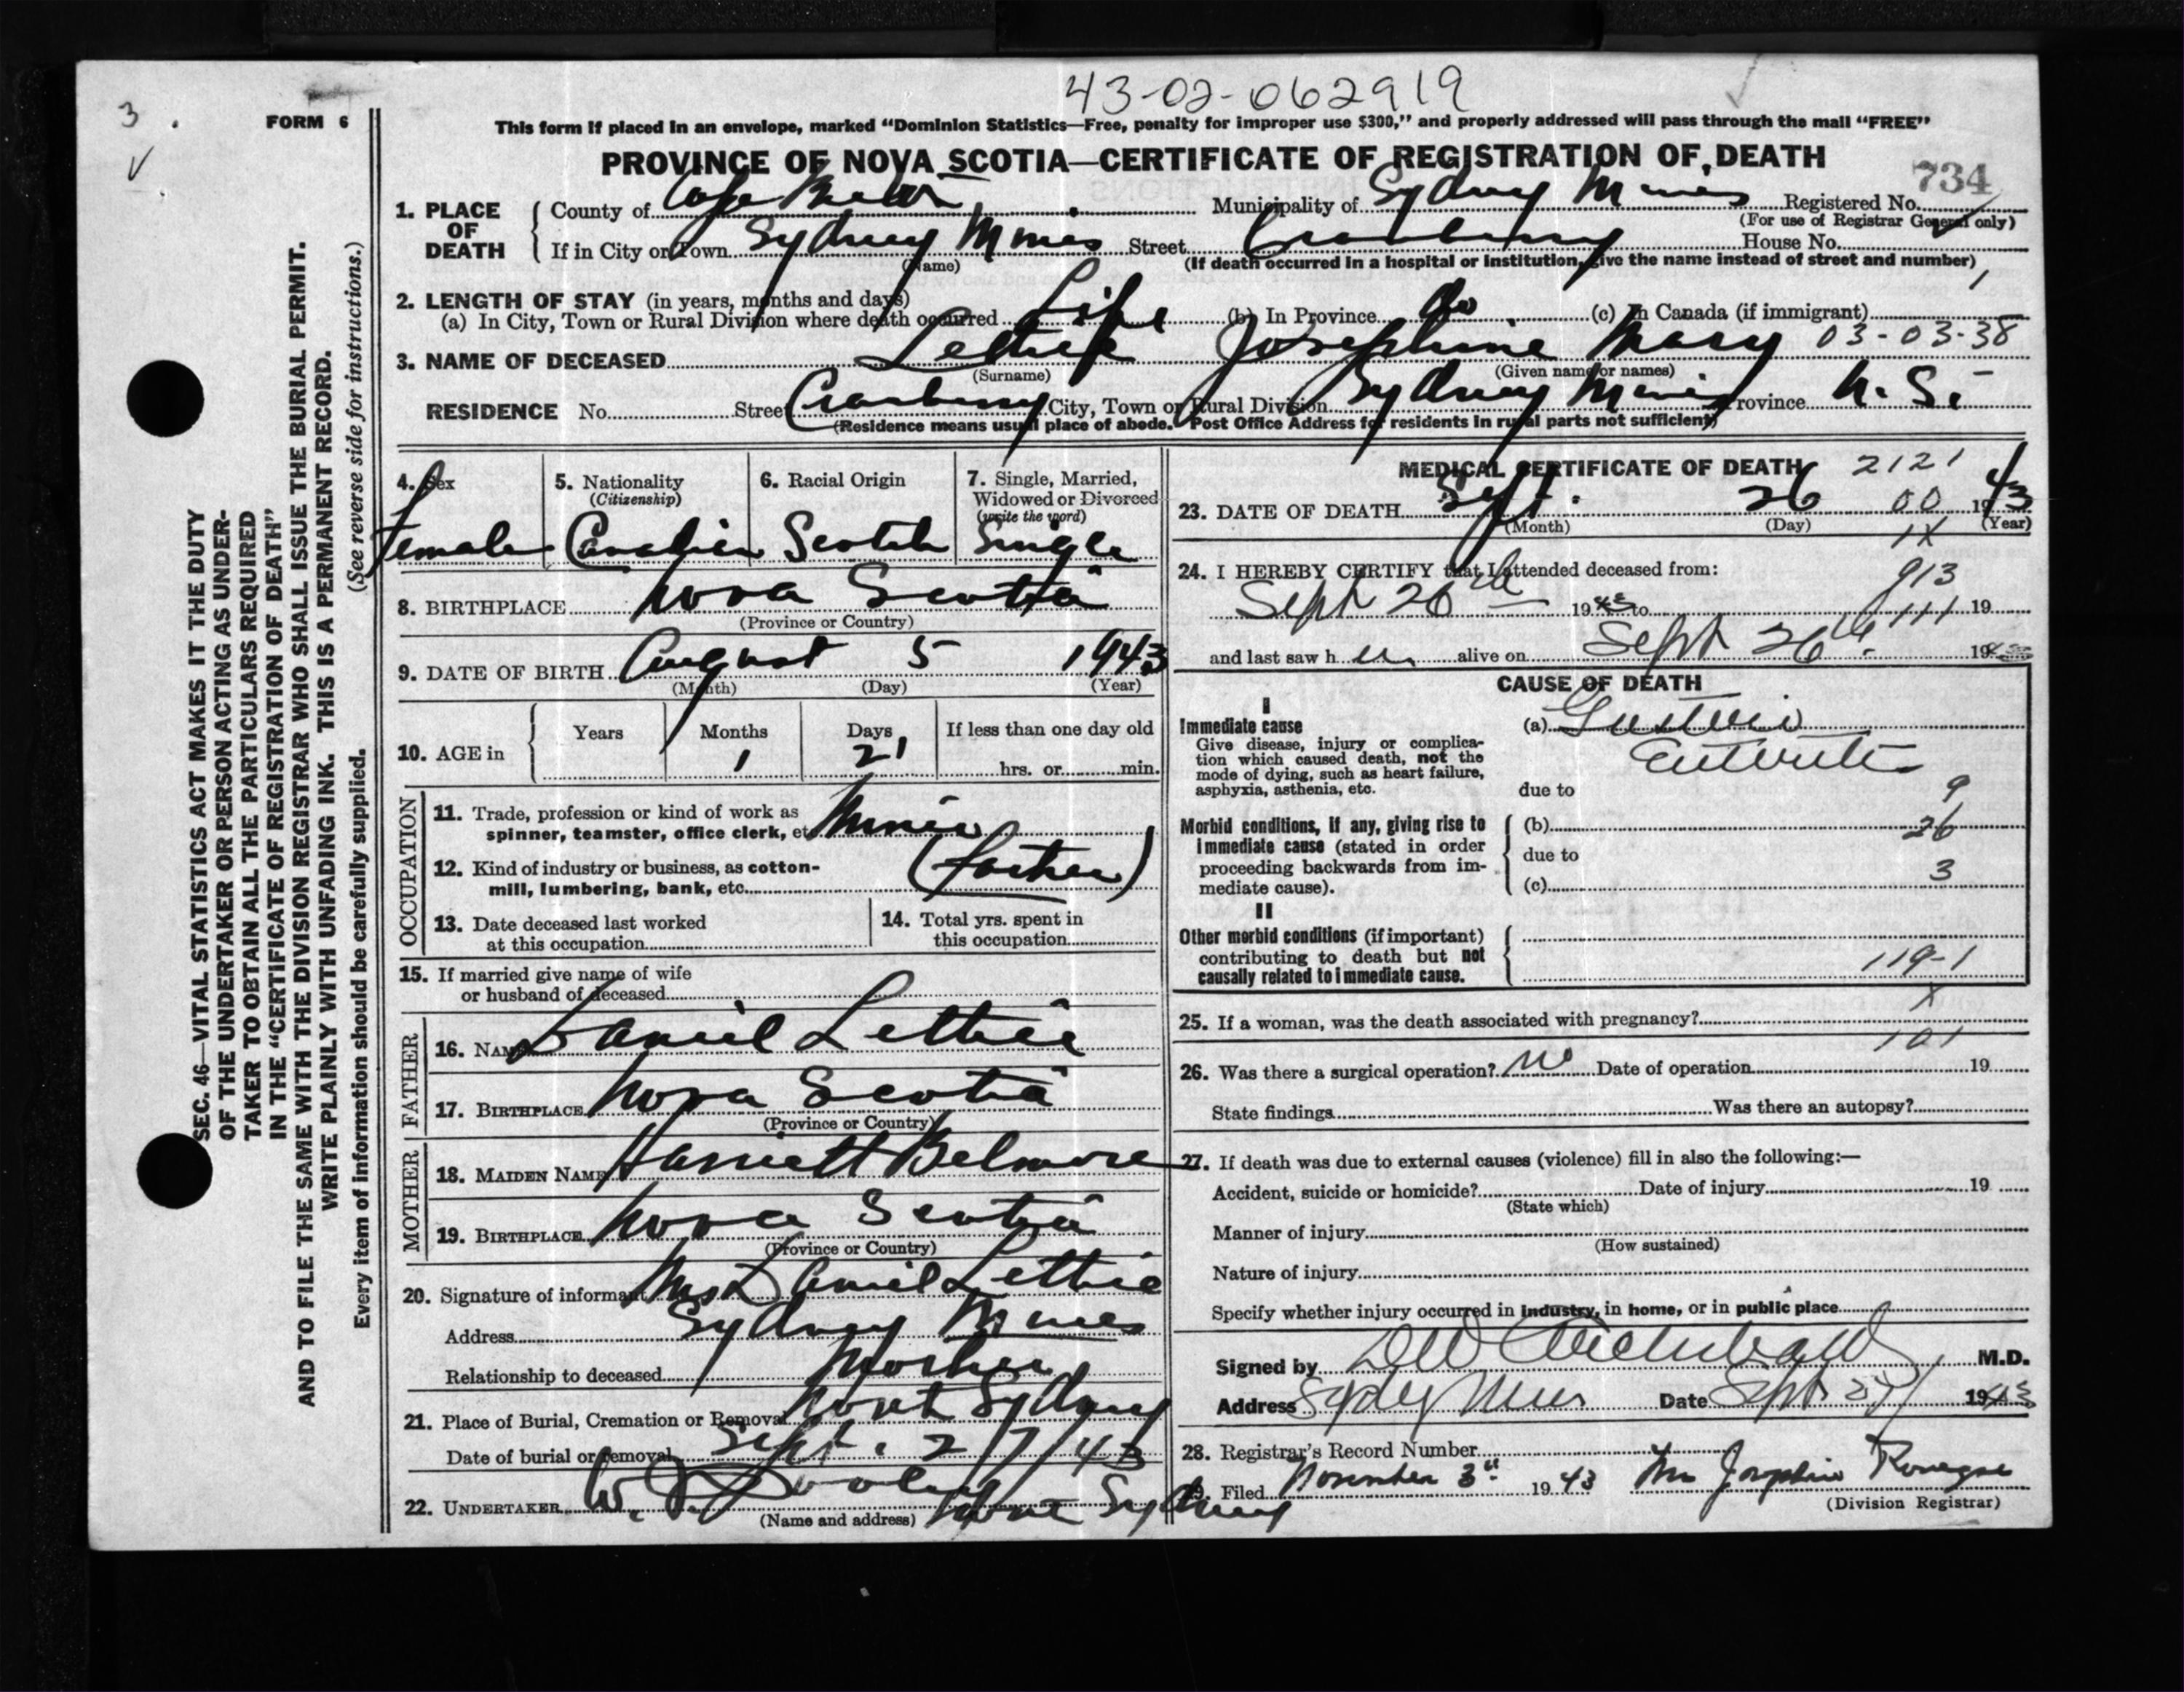 43-02-062919
3
FORM 6
This form if placed in an envelope, marked “Dominion Statistics—Free, penalty for improper use $300,” and properly addressed will pass through the mail “FREE”
PROVINCE OF NOVA SCOTIA—CERTIFICATE OF REGISTRATION OF DEATH
734
1. PLACE OF DEATH
County of Cape Breton Municipality of Sydney Mines Registered No.
(For use of Registrar General only)
If in City or Town Sydney Mines Street Cranberry House No.
(Name) (If death occurred in a hospital or institution, give the name instead of street and number)
2. LENGTH OF STAY (in years, months and days)
(a) In City, Town or Rural Division where death occurred Life (b) In Province do (c) In Canada (if immigrant)
3. NAME OF DECEASED Lethie Josephine Mary 03-03-38
(Surname) (Given name or names)
RESIDENCE No. Street Cranberry City, Town or Rural Division Sydney Mines Province N. S.
(Residence means usual place of abode. Post Office Address for residents in rural parts not sufficient)
4. Sex Female
5. Nationality (Citizenship) Canadian
6. Racial Origin Scotch
7. Single, Married, Widowed or Divorced (write the word) Single
8. BIRTHPLACE Nova Scotia
(Province or Country)
9. DATE OF BIRTH August 5 1943
(Month) (Day) (Year)
10. AGE in Years Months Days If less than one day old
1 21 hrs. or min.
OCCUPATION
11. Trade, profession or kind of work as
spinner, teamster, office clerk, etc. Miner
12. Kind of industry or business, as cotton-
mill, lumbering, bank, etc. (father)
13. Date deceased last worked
at this occupation
14. Total yrs. spent in
this occupation
15. If married give name of wife
or husband of deceased
FATHER
16. NAME Daniel Lethie
17. BIRTHPLACE Nova Scotia
(Province or Country)
MOTHER
18. MAIDEN NAME Harriett Belmore
19. BIRTHPLACE Nova Scotia
(Province or Country)
20. Signature of informant Mrs Daniel Lethie
Address Sydney Mines
Relationship to deceased Mother
21. Place of Burial, Cremation or Removal North Sydney
Date of burial or removal Sept. 27/43
22. UNDERTAKER W. J. Dooley North Sydney
(Name and address)
MEDICAL CERTIFICATE OF DEATH 2121
23. DATE OF DEATH Sept. 26 00 1943
(Month) (Day) (Year)
1X
24. I HEREBY CERTIFY that I attended deceased from: 913
Sept 26th 1943 to 111 19
and last saw her alive on Sept 26th 1943
CAUSE OF DEATH
I
Immediate cause
Give disease, injury or complica-
tion which caused death, not the
mode of dying, such as heart failure,
asphyxia, asthenia, etc.
(a) Gastric
Enteritis
due to 9
Morbid conditions, if any, giving rise to
immediate cause (stated in order
proceeding backwards from im-
mediate cause).
(b) 26
due to
(c) 3
II
Other morbid conditions (if important)
contributing to death but not
causally related to immediate cause.
119-1
X
25. If a woman, was the death associated with pregnancy?
101
26. Was there a surgical operation? no Date of operation 19
State findings Was there an autopsy?
27. If death was due to external causes (violence) fill in also the following:—
Accident, suicide or homicide? Date of injury 19
(State which)
Manner of injury
(How sustained)
Nature of injury
Specify whether injury occurred in industry, in home, or in public place
Signed by D W Archibald, M.D.
Address Sydney Mines Date Sept 27/ 1943
28. Registrar's Record Number
29. Filed November 3rd 1943 Mrs Josephine
(Division Registrar)
SEC. 46—VITAL STATISTICS ACT MAKES IT THE DUTY
OF THE UNDERTAKER OR PERSON ACTING AS UNDER-
TAKER TO OBTAIN ALL THE PARTICULARS REQUIRED
IN THE “CERTIFICATE OF REGISTRATION OF DEATH”
AND TO FILE THE SAME WITH THE DIVISION REGISTRAR WHO SHALL ISSUE THE BURIAL PERMIT.
WRITE PLAINLY WITH UNFADING INK. THIS IS A PERMANENT RECORD.
Every item of information should be carefully supplied. (See reverse side for instructions.)